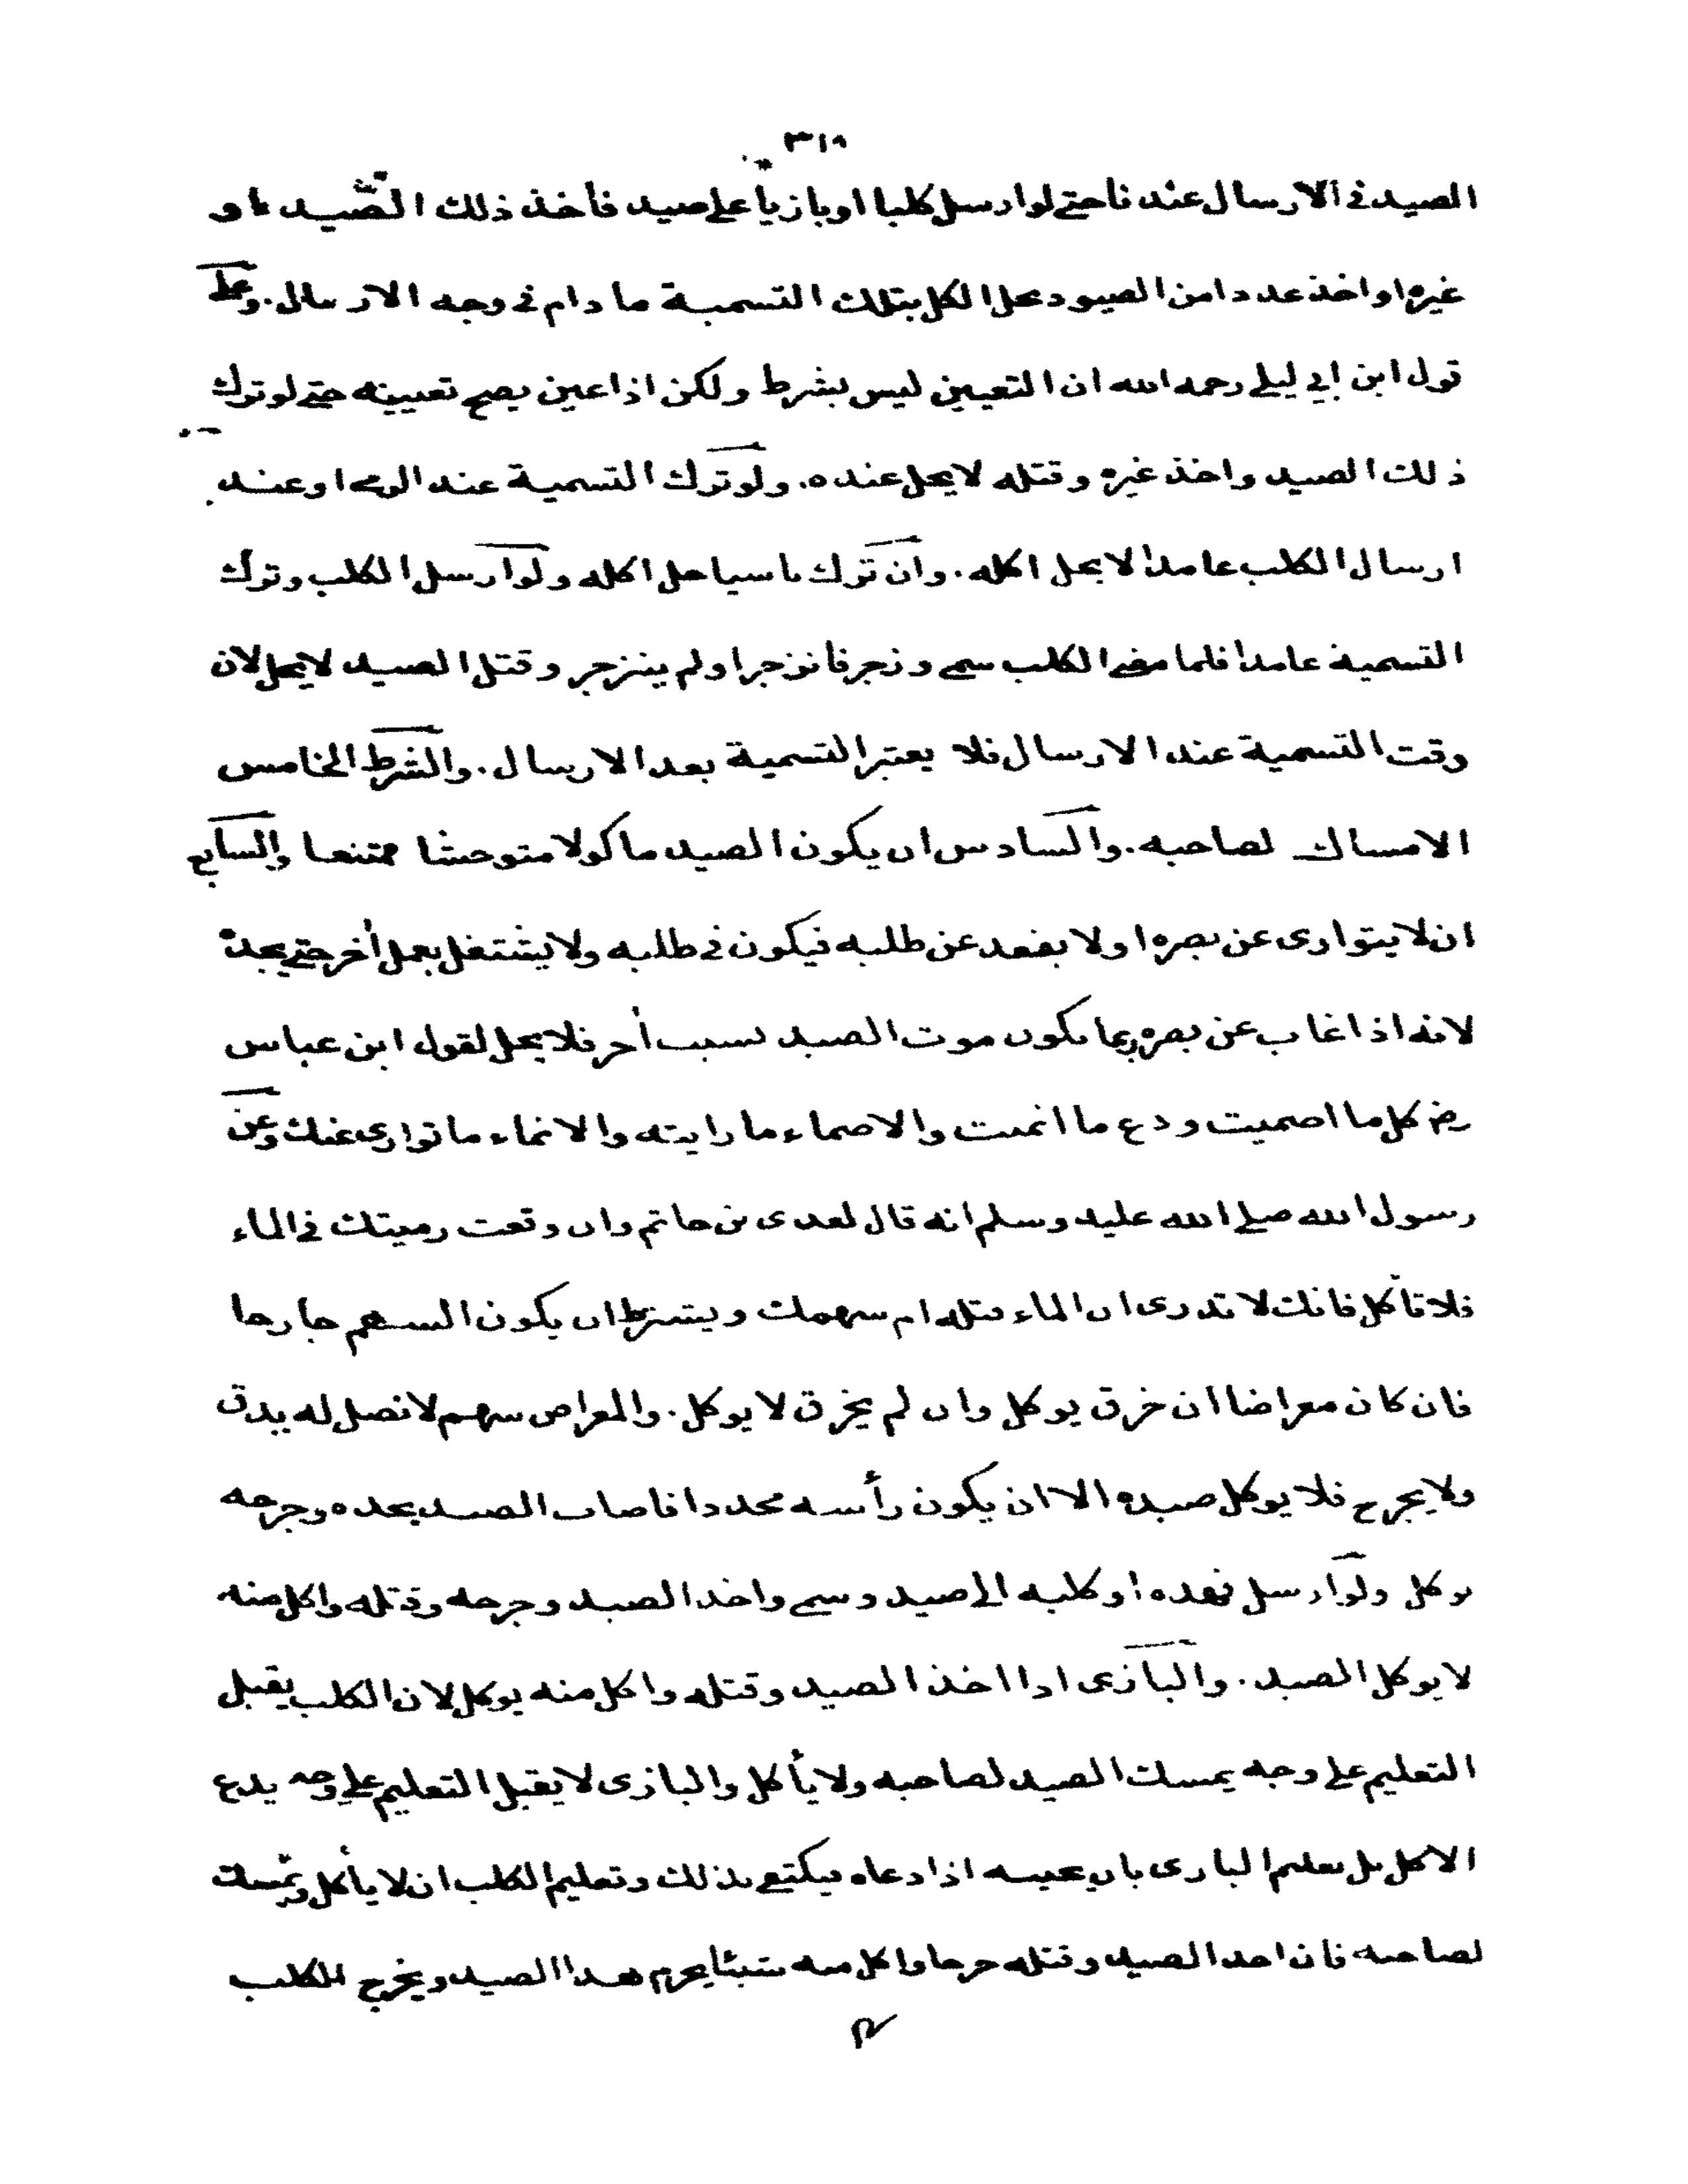 ٣١٩
الصيد فى الارسال عندنا حتى لو ارسل كلبا او بازيا على صيد فأخذ ذلك الصيد او
غيره او اخذ عددا من الصيود يحل الكل بتلك التسمية ما دام فى وجه الارسال. وعلى
قول ابن ابى ليلى رحمه الله ان التعيين ليس بشرط ولكن اذا عين يصح تعيينه حتى لو ترك
ذلك الصيد واخذ غيره وقتله لا يحل عنده. ولو ترك التسمية عند الرمى او عند
ارسال الكلب عامدا لا يحل اكله. وان ترك ناسيا حل اكله ولو ارسل الكلب وترك
التسمية عامدا فلما مضى الكلب سمى وزجر فانزجر او لم ينزجر وقتل الصيد لا يحل لان
وقت التسمية عند الارسال فلا يعتبر التسمية بعد الارسال. والشرط الخامس
الامساك لصاحبه. والسادس ان يكون الصيد ماكولا متوحشا ممتنعا والسابع
ان لا يتوارى عن بصره او لا يقعد عن طلبه فيكون فى طلبه ولا يشتغل بعمل أخر حتى يجده
لانه اذا غاب عن بصره ربما يكون موت الصيد بسبب أخر فلا يحل لقول ابن عباس
رضـ كل ما اصميت ودع ما انميت والاصماء ما رايته والانماء ما توارى عنك وعن
رسول الله صلى الله عليه وسلم انه قال لعدى بن حاتم وان وقعت رميتك فى الماء
فلا تأكل فانك لا تدرى ان الماء قتله ام سهمك ويشترط ان يكون السهم جارحا
فان كان معراضا ان خرق يوكل وان لم يخرق لا يوكل. والمعراض سهم لا نصل له يدق
ولا يجرح فلا يوكل صيده الا ان يكون رأسه محددا فاصاب الصيد بحده وجرحه
يوكل ولو ارسل فهده او كلبه الى صيد وسمى واخذ الصيد وجرحه وقتله واكل منه
لا يوكل الصيد. والبازى اذا اخذ الصيد وقتله واكل منه يوكل لان الكلب يقبل
التعليم على وجه يمسك الصيد لصاحبه ولا يأكل والبازى لا يقبل التعليم على وجه يدع
الاكل بل تعليم البازى بان يجيبه اذا دعاه فيكتفى بذلك وتعليم الكلب ان لا يأكل ويمسك
لصاحبه فان اخذ الصيد وقتله جرحا واكل منه شيئا يحرم هذا الصيد ويخرج الكلب